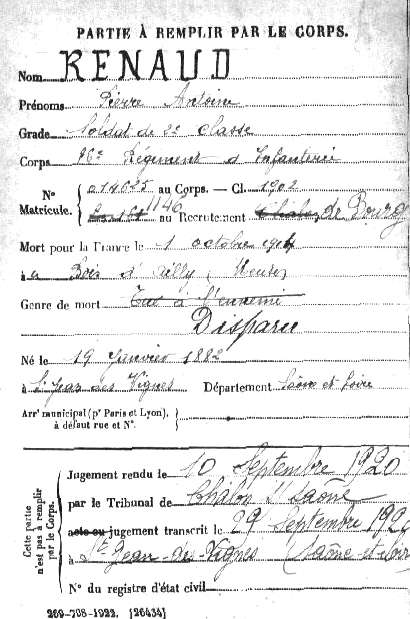 PARTIE À REMPLIR PAR LE CORPS.
Nom RENAUD
Prénoms Pierre Antoine
Grade Soldat de 2e classe
Corps Régiment d'Infanterie
N° Matricule. au Corps. — Cl. 1902
1146 au Recrutement Châlon de Bourg
Mort pour la France le 1 octobre 1914
à Bois d'Ailly, Meuse
Genre de mort Tué à l'ennemi
Disparu
Né le 19 Janvier 1882
à St Jean des Vignes Département Saône et Loire
Arr' municipal (p' Paris et Lyon), à défaut rue et N°.
Cette partie n'est pas à remplir par le Corps.
Jugement rendu le 10 Septembre 1920
par le Tribunal de Châlon s/ Saône
acte ou jugement transcrit le 29 Septembre 1920
à St Jean-des-Vignes (Saône-et-Loire
N° du registre d'état civil
269-708-1922. [26434]